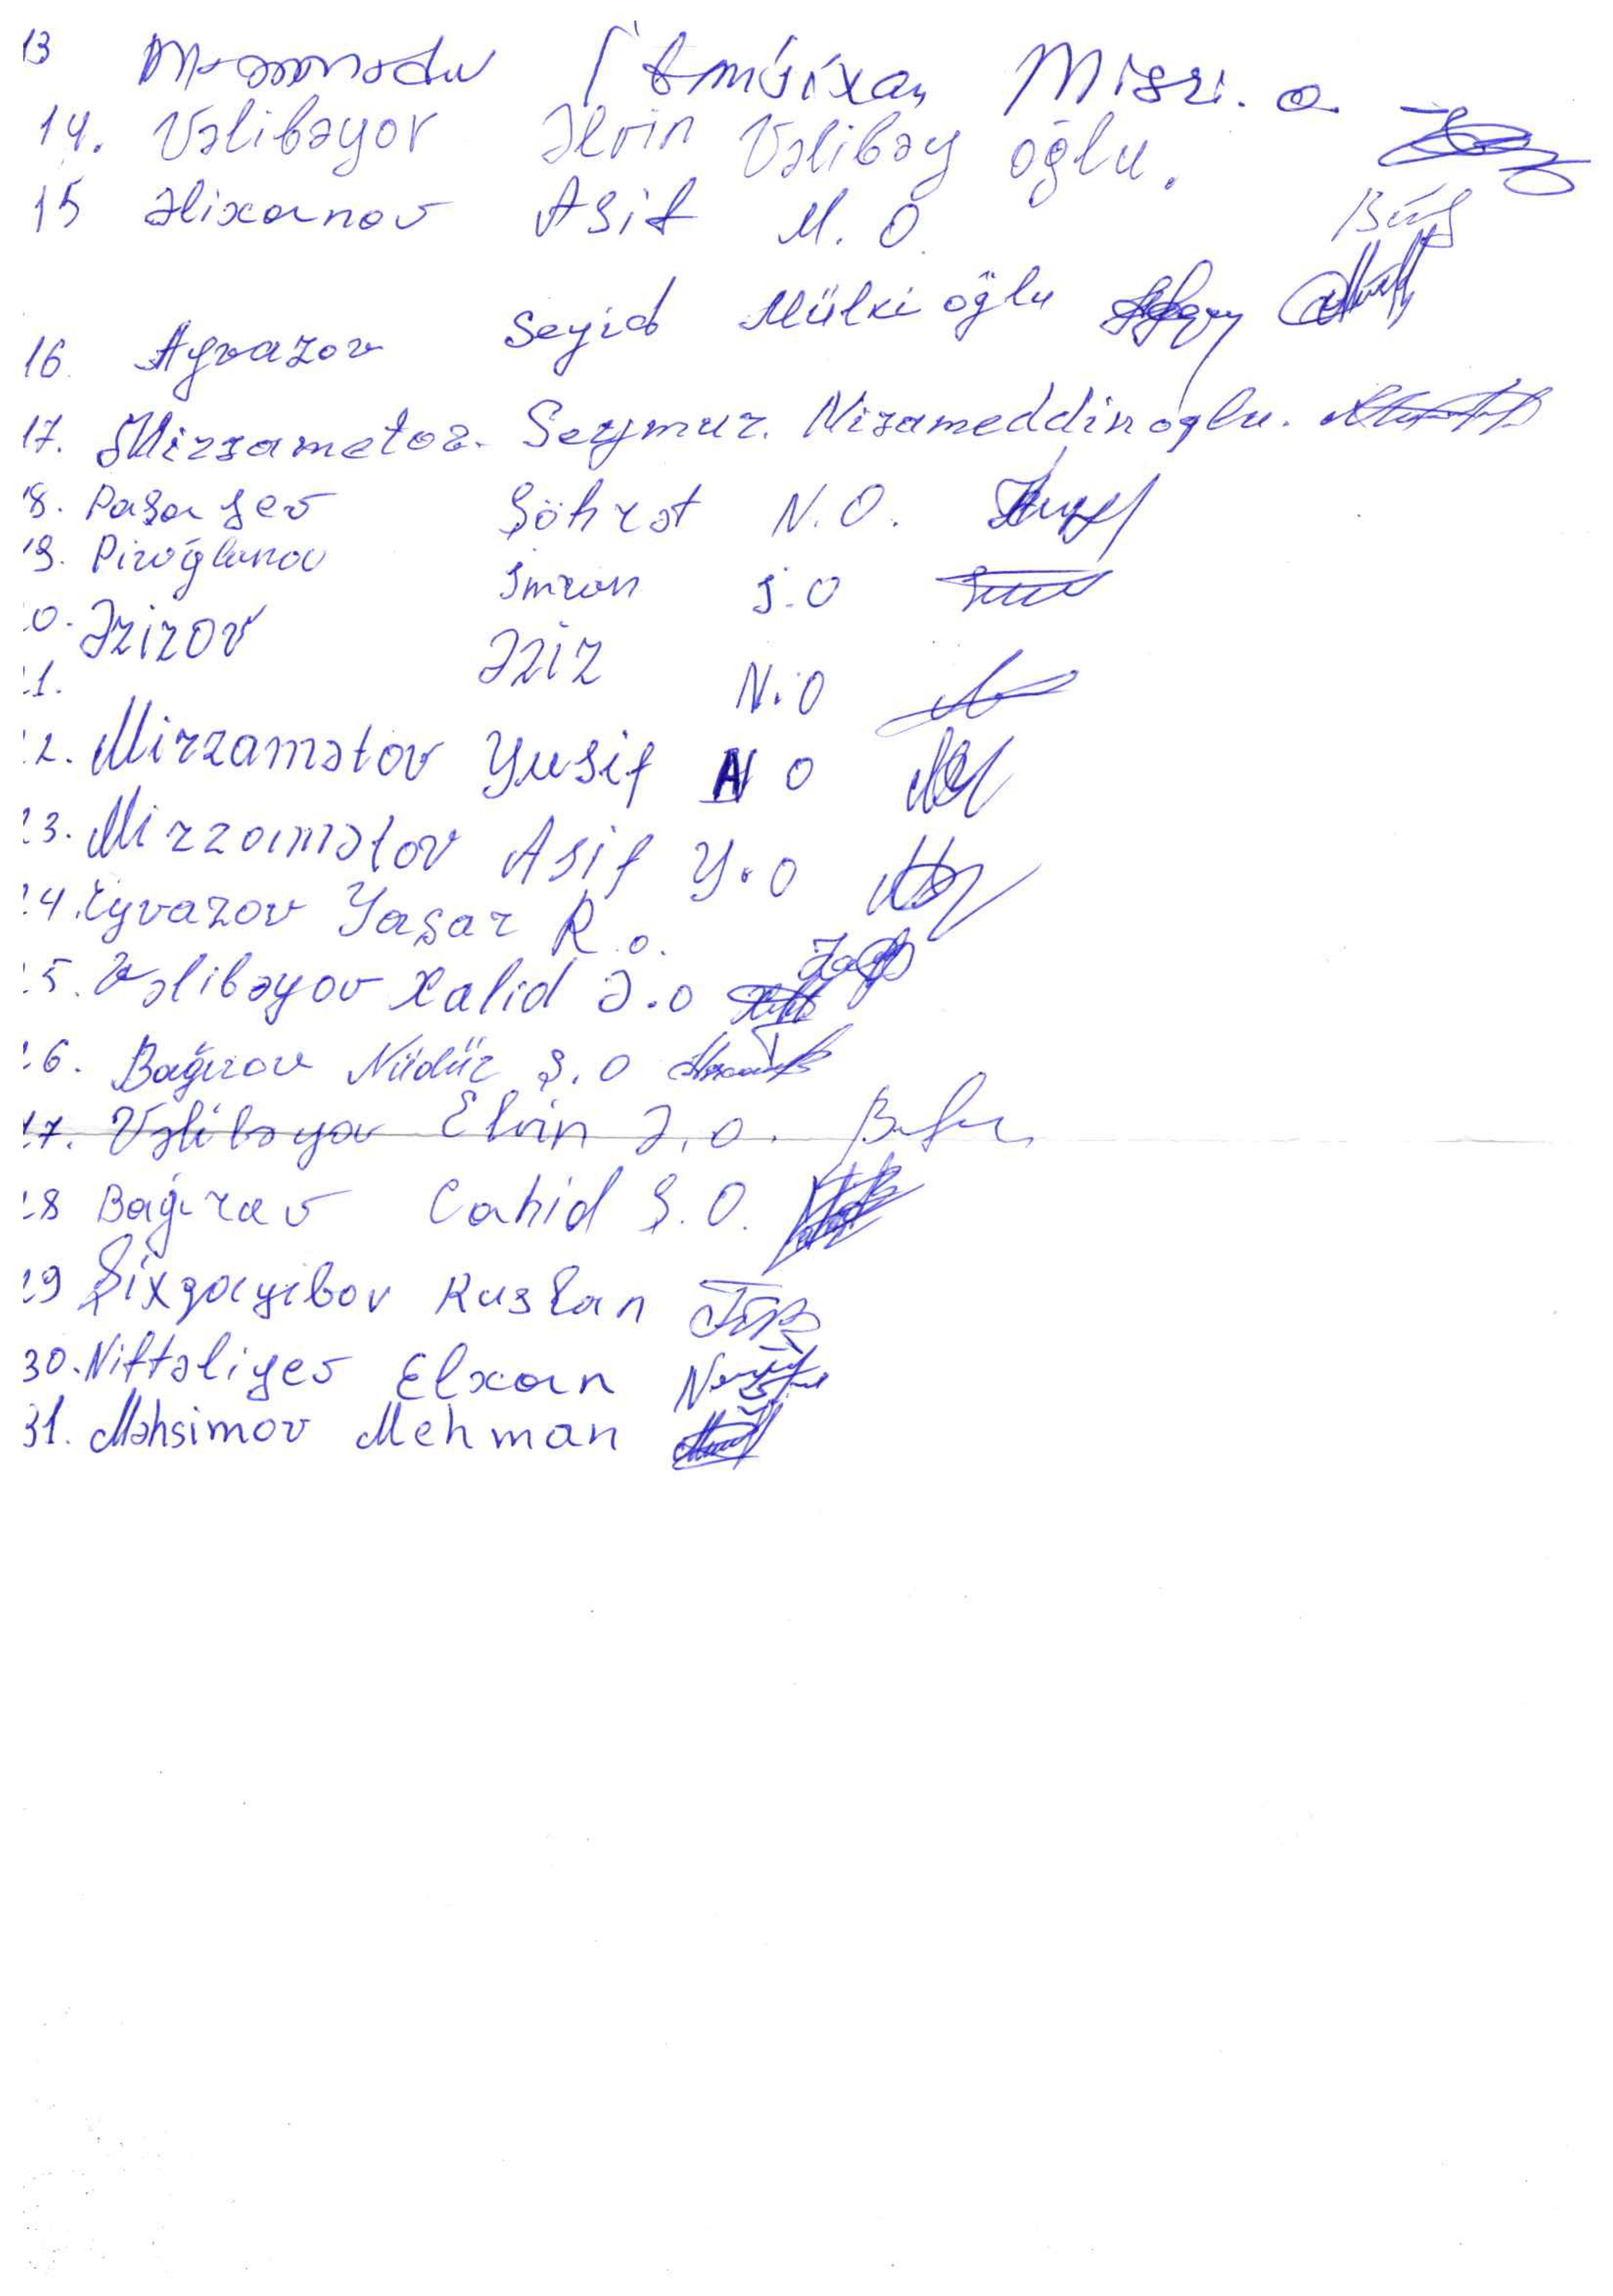 13 Məmmədov Şəmsixan Misri. o.
14. Vəlibəyov Əlvin Vəlibəy oğlu.
15 Əlixanov Asif M. O.
16. Ayvazov Seyid Mülki oğlu
17. Mirzametov. Seymur. Nizameddin oglu.
18. Paşayev Şöhrət N. O.
19. Piroğlanov İmran Ş. O
20. Əzizov Əziz N. O
21.
22. Mirzamətov Yusif N O
23. Mirzamətov Asif Y. O
24. Eyvazov Yaşar R. o.
25. Vəlibəyov Xalid Ə. O
26. Bağırov Nüdür Ş. O
27. Vəlibəyov Elvin Ə. O.
28 Bağırov Cahid Ş. O.
29 Şixqayıbov Ruslan
30. Niftəliyev Elxan
31. Məhsimov Mehman